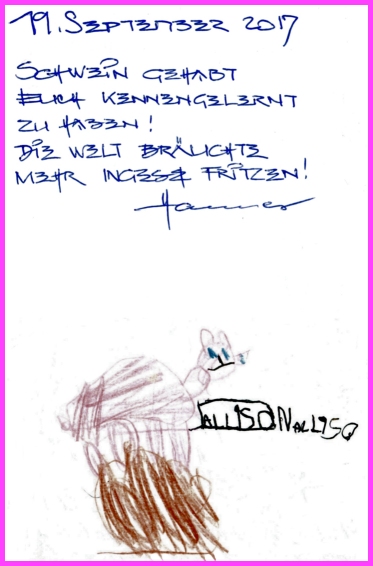 19. SEPTEMBER 2017
SCHWEIN GEHABT
EUCH KENNENGELERNT
ZU HABEN!
DIE WELT BRÄUCHTE
MEHR INGESE FRITZEN!
Hannes
ALLISON ALLISO